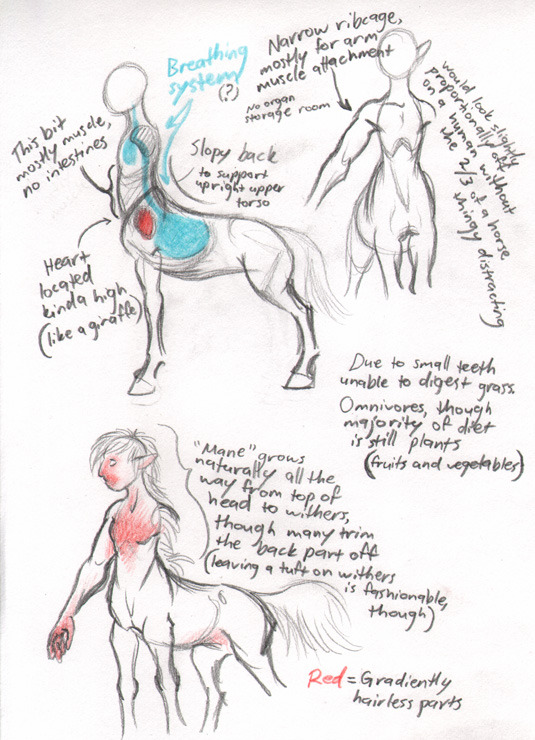 Breathing
system
(?)
Narrow ribcage,
mostly for arm
muscle attachment
No organ
storage room
would look slightly
proportionally off
on a human without
the 2/3 of a horse
thingy distracting
This bit
mostly muscle,
no intestines
Slopy back
to support
upright upper
torso
Heart
located
kinda high
(like a giraffe)
Due to small teeth
unable to digest grass.
Omnivores, though
majority of diet
is still plants
(fruits and vegetables)
"Mane" grows
naturally all the
way from top of
head to withers,
though many trim
the back part off
(leaving a tuft on withers
is fashionable,
though)
Red = Gradiently
hairless parts